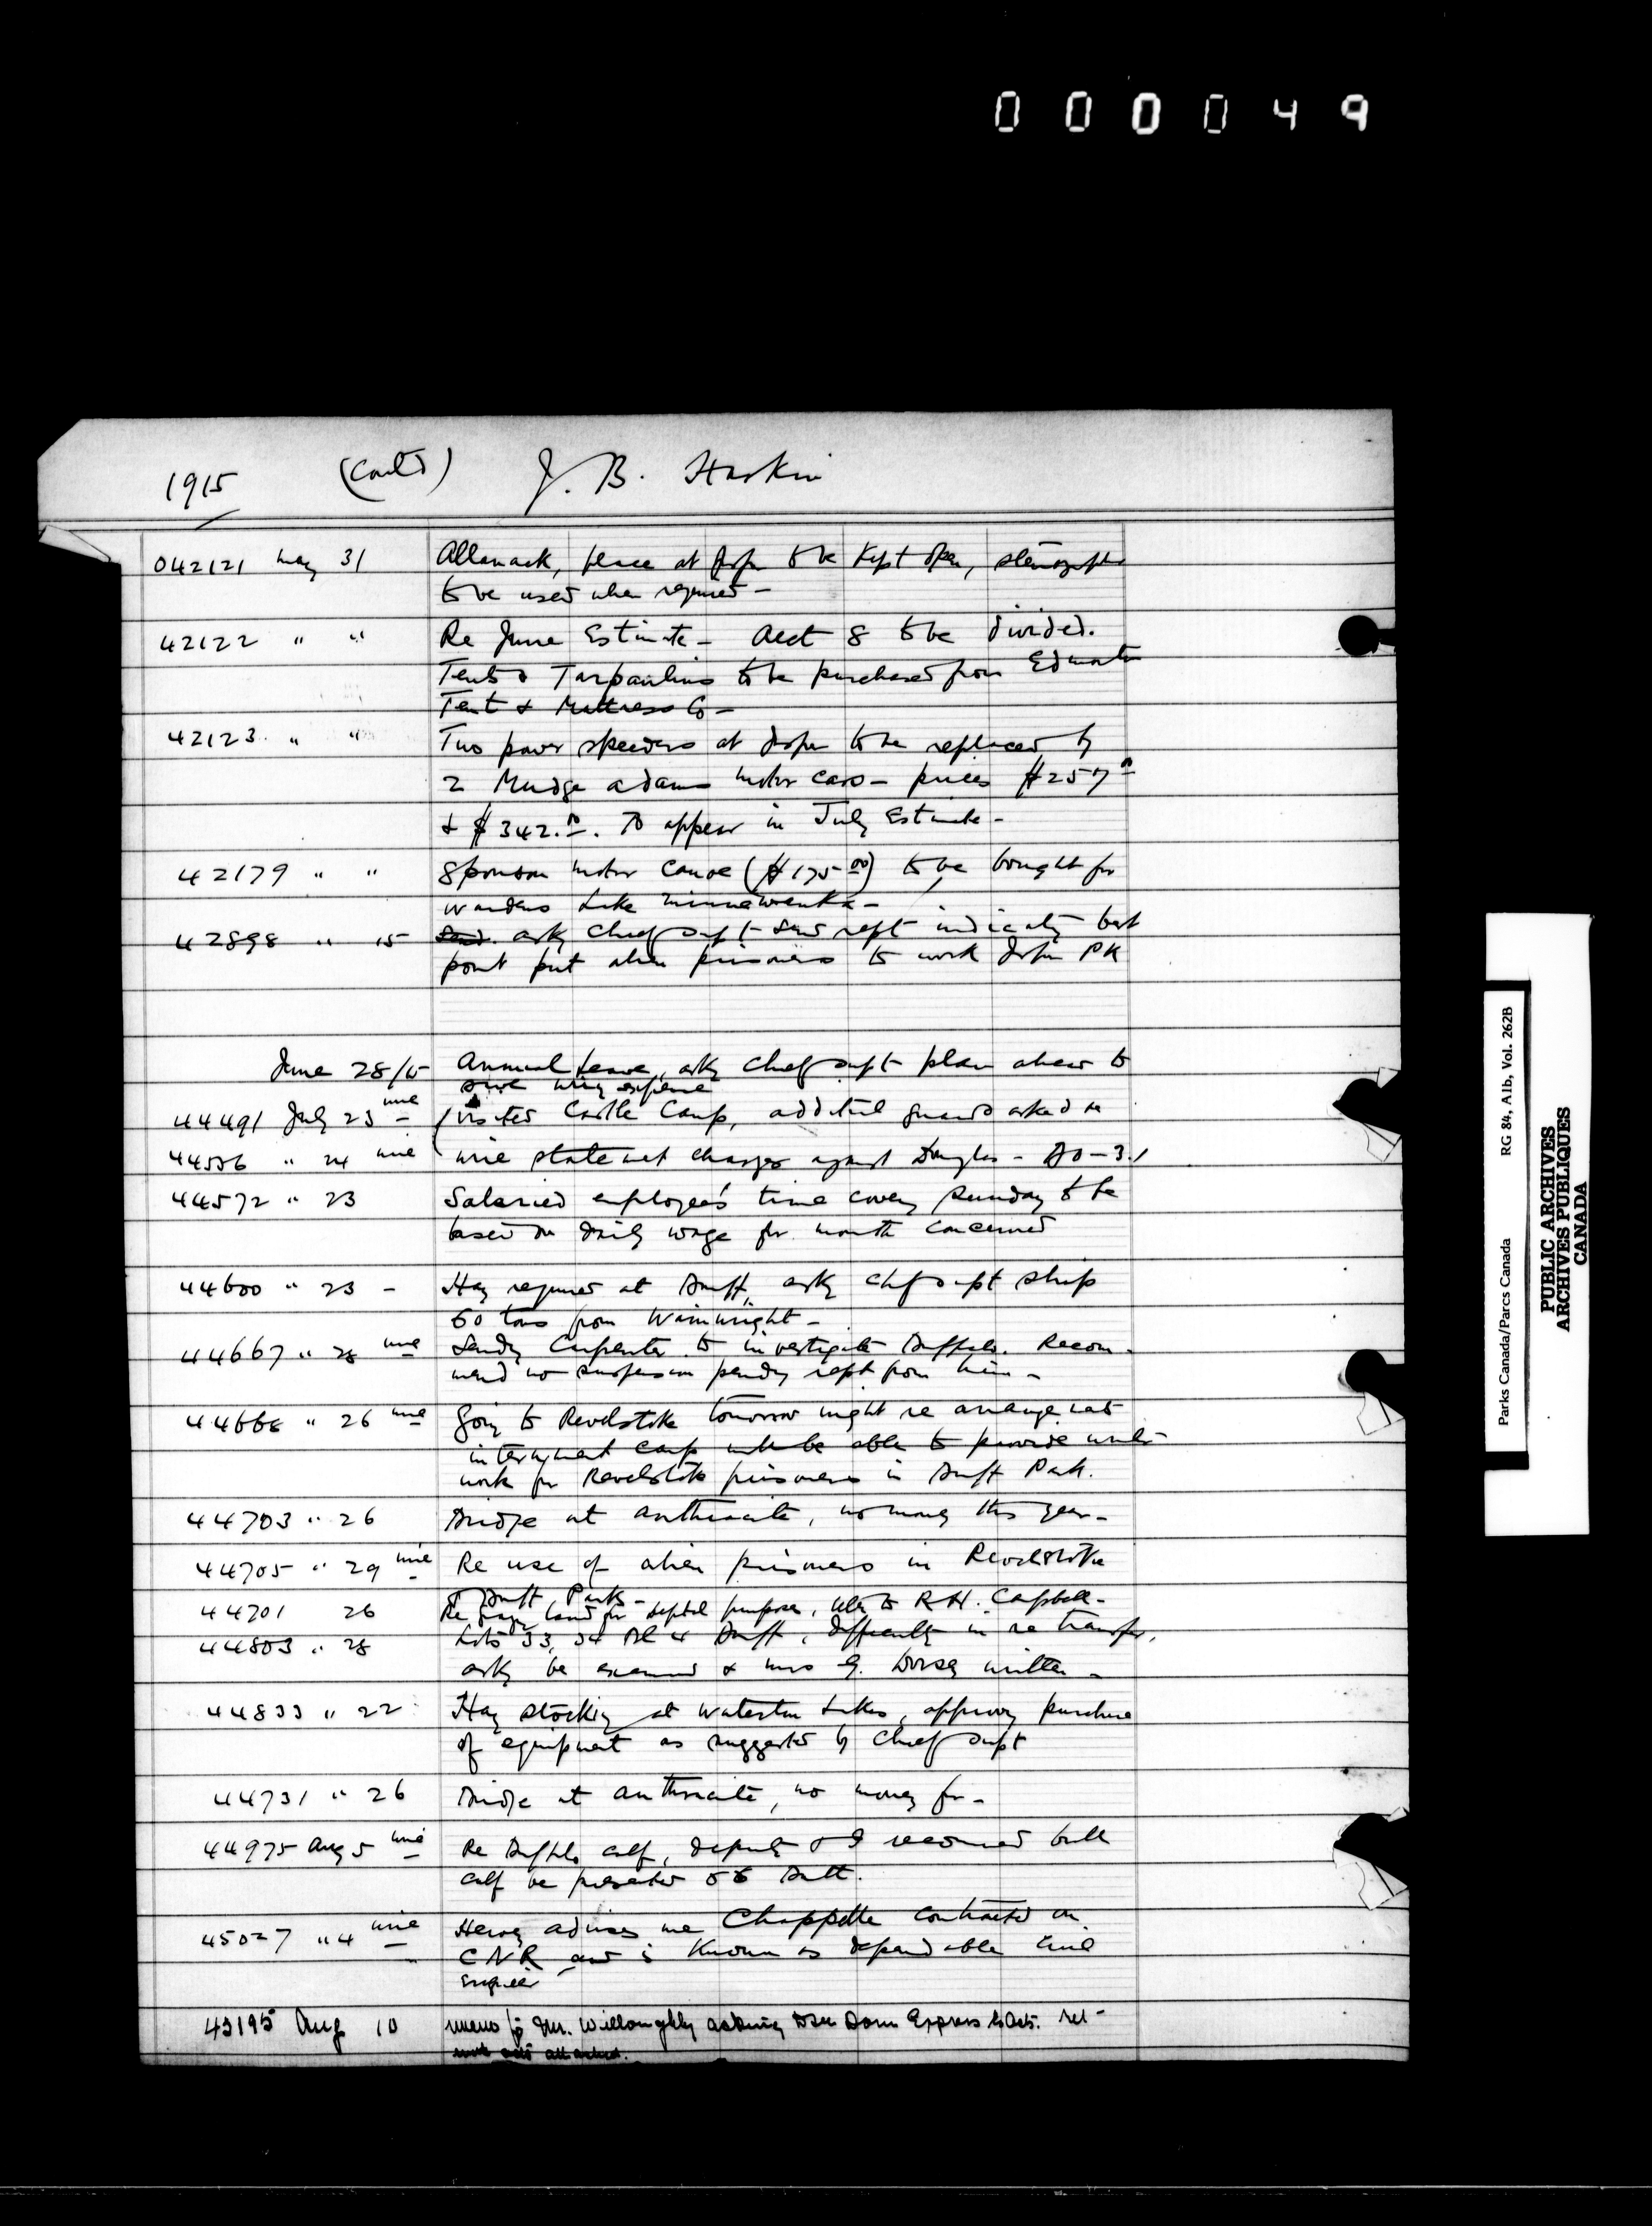 0 0 0 0 4 9
1915 (Cont'd) J. B. Harkin
042121 May 31 Allanack, place at Jasper to be kept open,
to be used when required –
42122 " " Re June Estimate – Acct 8 to be divided.
Tents & Tarpaulins to be purchased from Edmonton
Tent & Mattress Co –
42123 " " Two power speeders at Jasper to be replaced by
2 Mudge Adams motor cars – prices $257
& $342. To appear in July Estimate –
42179 " " Sponson motor canoe ($175.00) to be bought for
wardens Lake Minnewanka –
42898 " 15 asks Chief Supt send rept indicating best
point put alien prisoners to work Jasper Pk
June 28/15 Annual leave, asks Chief Supt plan ahead to
save wiring expense
44491 July 23 wire Visited Castle Camp, additnl guards asked re
44556 " 24 wire wire statement charges against Douglas –
44572 " 23 Salaried employee's time covering Sunday to be
based on daily wage for month concerned
44600 " 23 – Hay required at Banff, asks Chf Supt ship
60 tons from Wainwright –
44667 " 28 wire Sending Carpenter to investigate Buffalo. Recom-
mend no suspension pending rept from him –
44668 " 26 wire Going to Revelstoke tomorrow night re arrangements
internment camp will be able to provide winter
work for Revelstoke prisoners in Banff Park.
44703 " 26 Bridge at Anthracite, no money this year –
44705 " 29 wire Re use of alien prisoners in Revelstoke
& Banff Parks –
44701 26 Re land for deptal purposes, to R.H. Campbell –
44803 " 28 Lots 33, 34 Bl 4 Banff, difficulty in re transfer,
asks be examined & Mrs G. written –
44833 " 22 Hay stocking at Waterton Lakes, approving purchase
of equipment as suggested by Chief Supt
44731 " 26 Bridge at Anthracite, no money for –
44975 Aug 5 wire Re Buffalo calf, deputy & I recommend bull
calf be presented 56 Batt.
45027 " 4 wire Hervey advises me Chappelle contracted on
CNR and is known as dependable
Engineer
45195 Aug 10 memo to Mr. Willoughby asking Dom Express Accts.
accts attached.
Parks Canada/Parcs Canada RG 84, A1b, Vol. 262B
PUBLIC ARCHIVES
ARCHIVES PUBLIQUES
CANADA